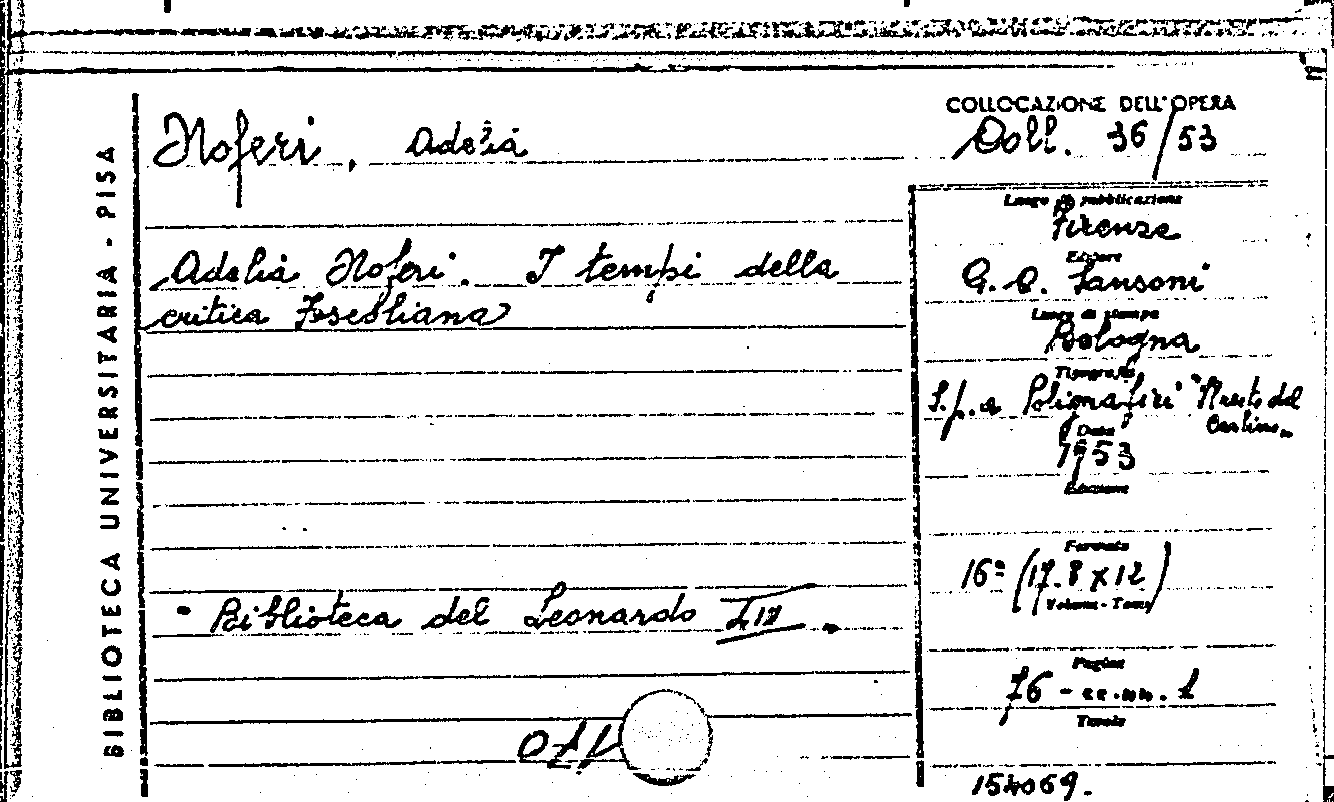 BIBLIOTECA UNIVERSITARIA - PISA
Noferi, Adelia
Adelia Noferi. I tempi della
critica Foscoliana
" Biblioteca del Leonardo LII "
COLLOCAZIONE DELL'OPERA
Coll. 36/53
Luogo di pubblicazione
Firenze
Editore
G. C. Sansoni
Luogo di stampa
Bologna
Tipografia
S.p.a Poligrafici "Il Resto del
Carlino"
Data
1953
Edizione
Formato
16° (17.8 x 12)
Volume - Tomo
Pagine
76 - cc.nn. 1
Tavole
154069.